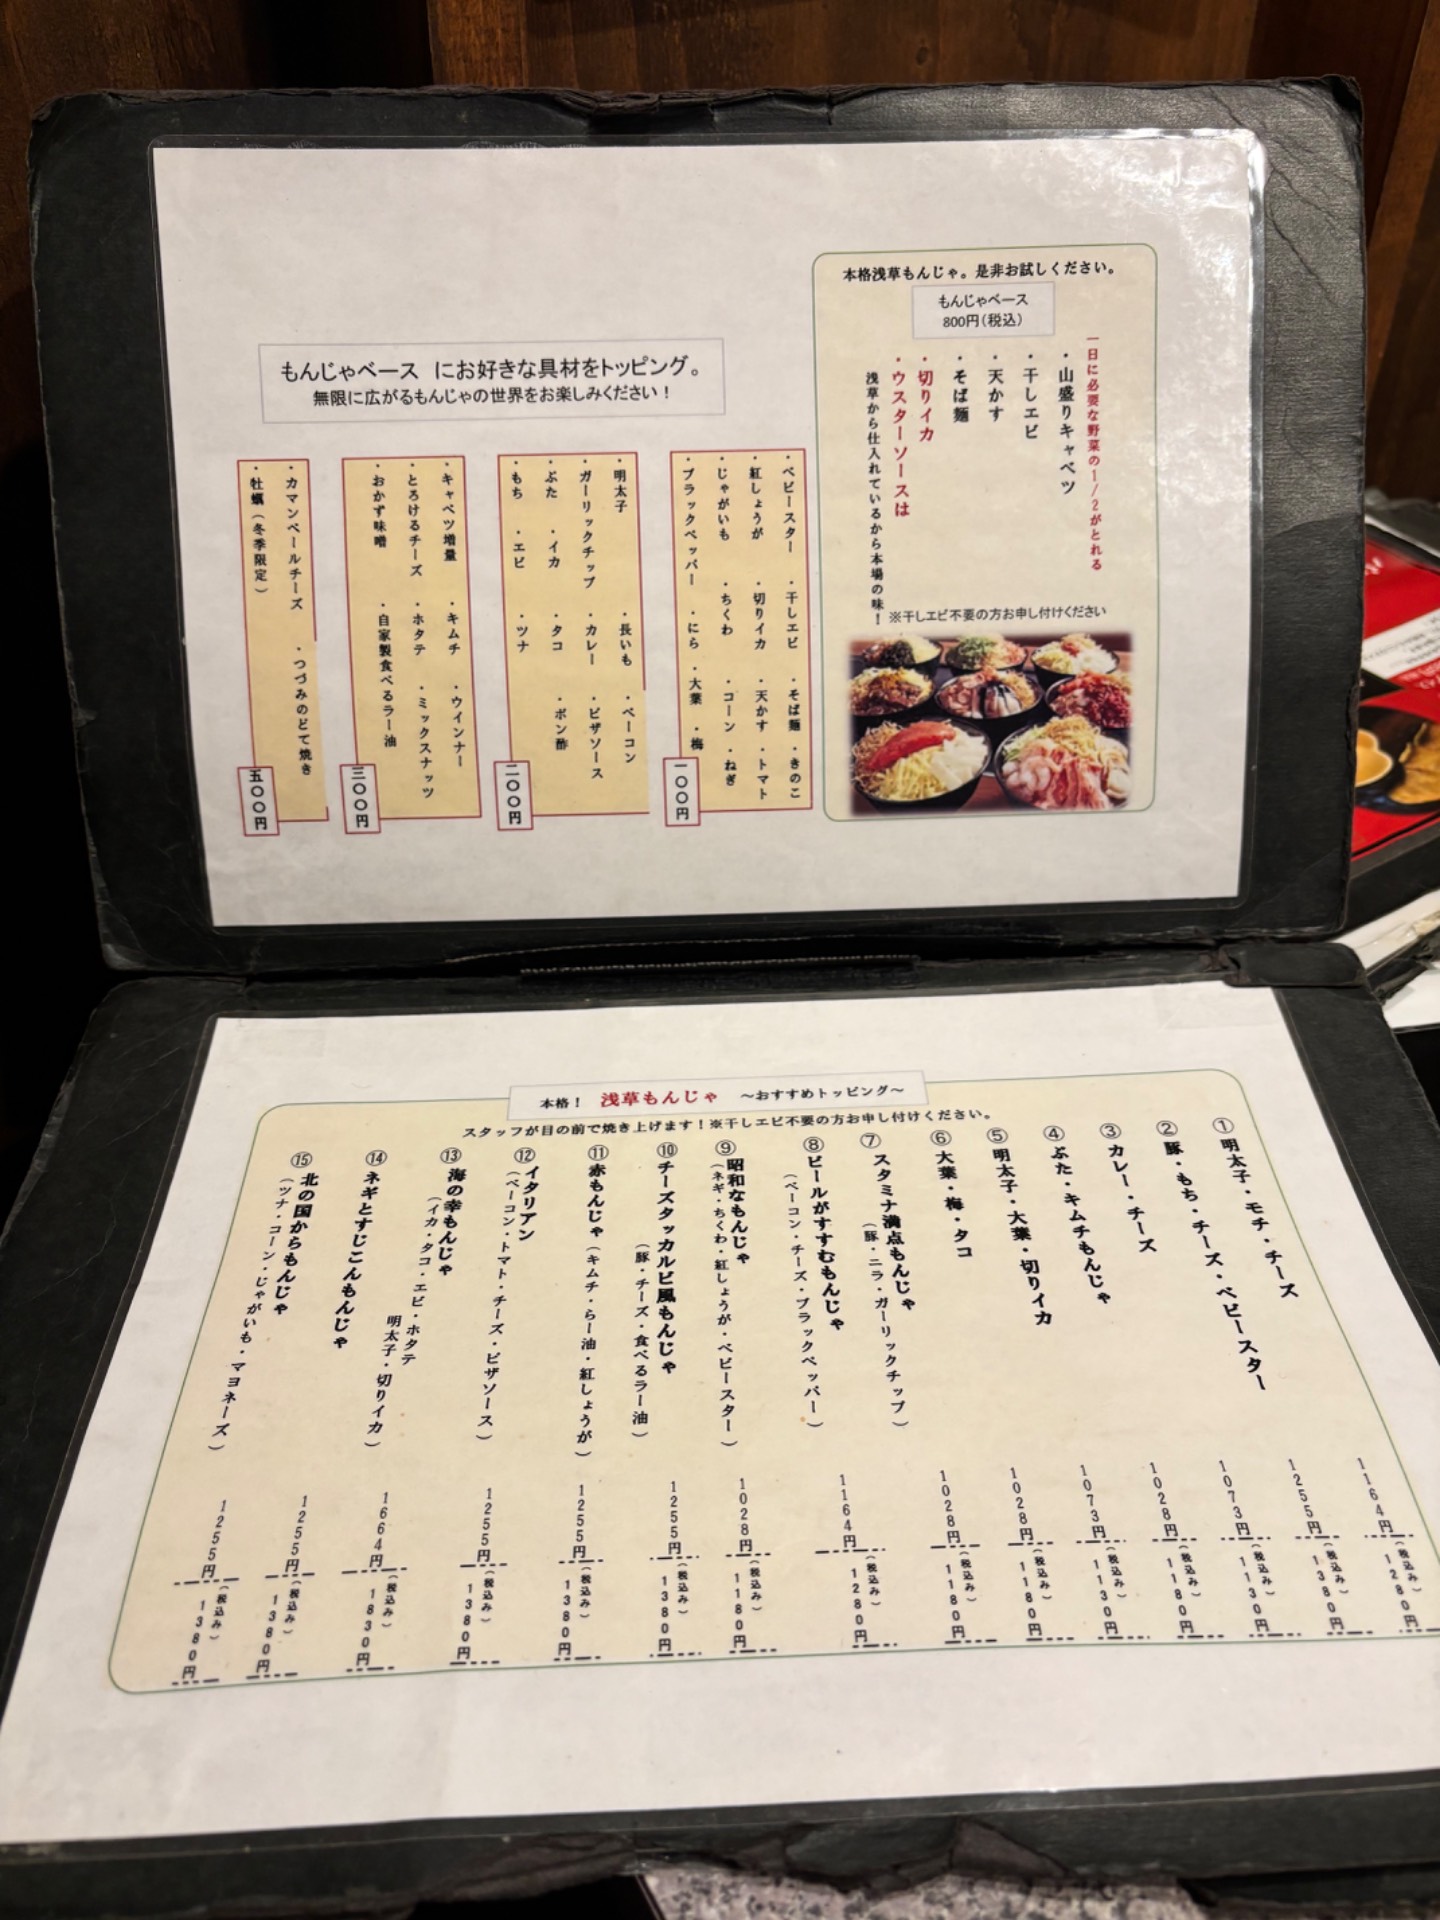 本格浅草もんじゃ。是非お試しください。
もんじゃベース
800円（税込）
一日に必要な野菜の1/2がとれる
・山盛りキャベツ
・干しエビ
・天かす
・そば麺
・切りイカ
・ウスターソースは
浅草から仕入れているから本場の味！
※干しエビ不要の方お申し付けください
もんじゃベース にお好きな具材をトッピング。
無限に広がるもんじゃの世界をお楽しみください！
・ベビースター ・干しエビ ・そば麺 ・きのこ
・紅しょうが ・切りイカ ・天かす ・トマト
・じゃがいも ・ちくわ ・コーン ・ねぎ
・ブラックペッパー ・にら ・大葉 ・梅
一〇〇円
・明太子 ・長いも ・ベーコン
・ガーリックチップ ・カレー ・ピザソース
・ぶた ・イカ ・タコ ・ポン酢
・もち ・エビ ・ツナ
二〇〇円
・キャベツ増量 ・キムチ ・ウインナー
・とろけるチーズ ・ホタテ ・ミックスナッツ
・おかず味噌 ・自家製食べるラー油
三〇〇円
・カマンベールチーズ ・つづみのどて焼き
・牡蠣（冬季限定）
五〇〇円
本格！ 浅草もんじゃ ～おすすめトッピング～
スタッフが目の前で焼き上げます！※干しエビ不要の方お申し付けください。
①明太子・モチ・チーズ
1164円（税込み）1280円
②豚・もち・チーズ・ベビースター
1255円（税込み）1380円
③カレー・チーズ
1073円（税込み）1130円
④ぶた・キムチもんじゃ
1028円（税込み）1180円
⑤明太子・大葉・切りイカ
1073円（税込み）1130円
⑥大葉・梅・タコ
1028円（税込み）1180円
⑦スタミナ満点もんじゃ
（豚・ニラ・ガーリックチップ）
1028円（税込み）1180円
⑧ビールがすすむもんじゃ
（ベーコン・チーズ・ブラックペッパー）
1164円（税込み）1280円
⑨昭和なもんじゃ
（ネギ・ちくわ・紅しょうが・ベビースター）
1028円（税込み）1180円
⑩チーズタッカルビ風もんじゃ
（豚・チーズ・食べるラー油）
1255円（税込み）1380円
⑪赤もんじゃ（キムチ・らー油・紅しょうが）
1255円（税込み）1380円
⑫イタリアン
（ベーコン・トマト・チーズ・ピザソース）
1255円（税込み）1380円
⑬海の幸もんじゃ
（イカ・タコ・エビ・ホタテ
明太子・切りイカ）
1664円（税込み）1830円
⑭ネギとすじこんもんじゃ
1255円（税込み）1380円
⑮北の国からもんじゃ
（ツナ・コーン・じゃがいも・マヨネーズ）
1255円（税込み）1380円